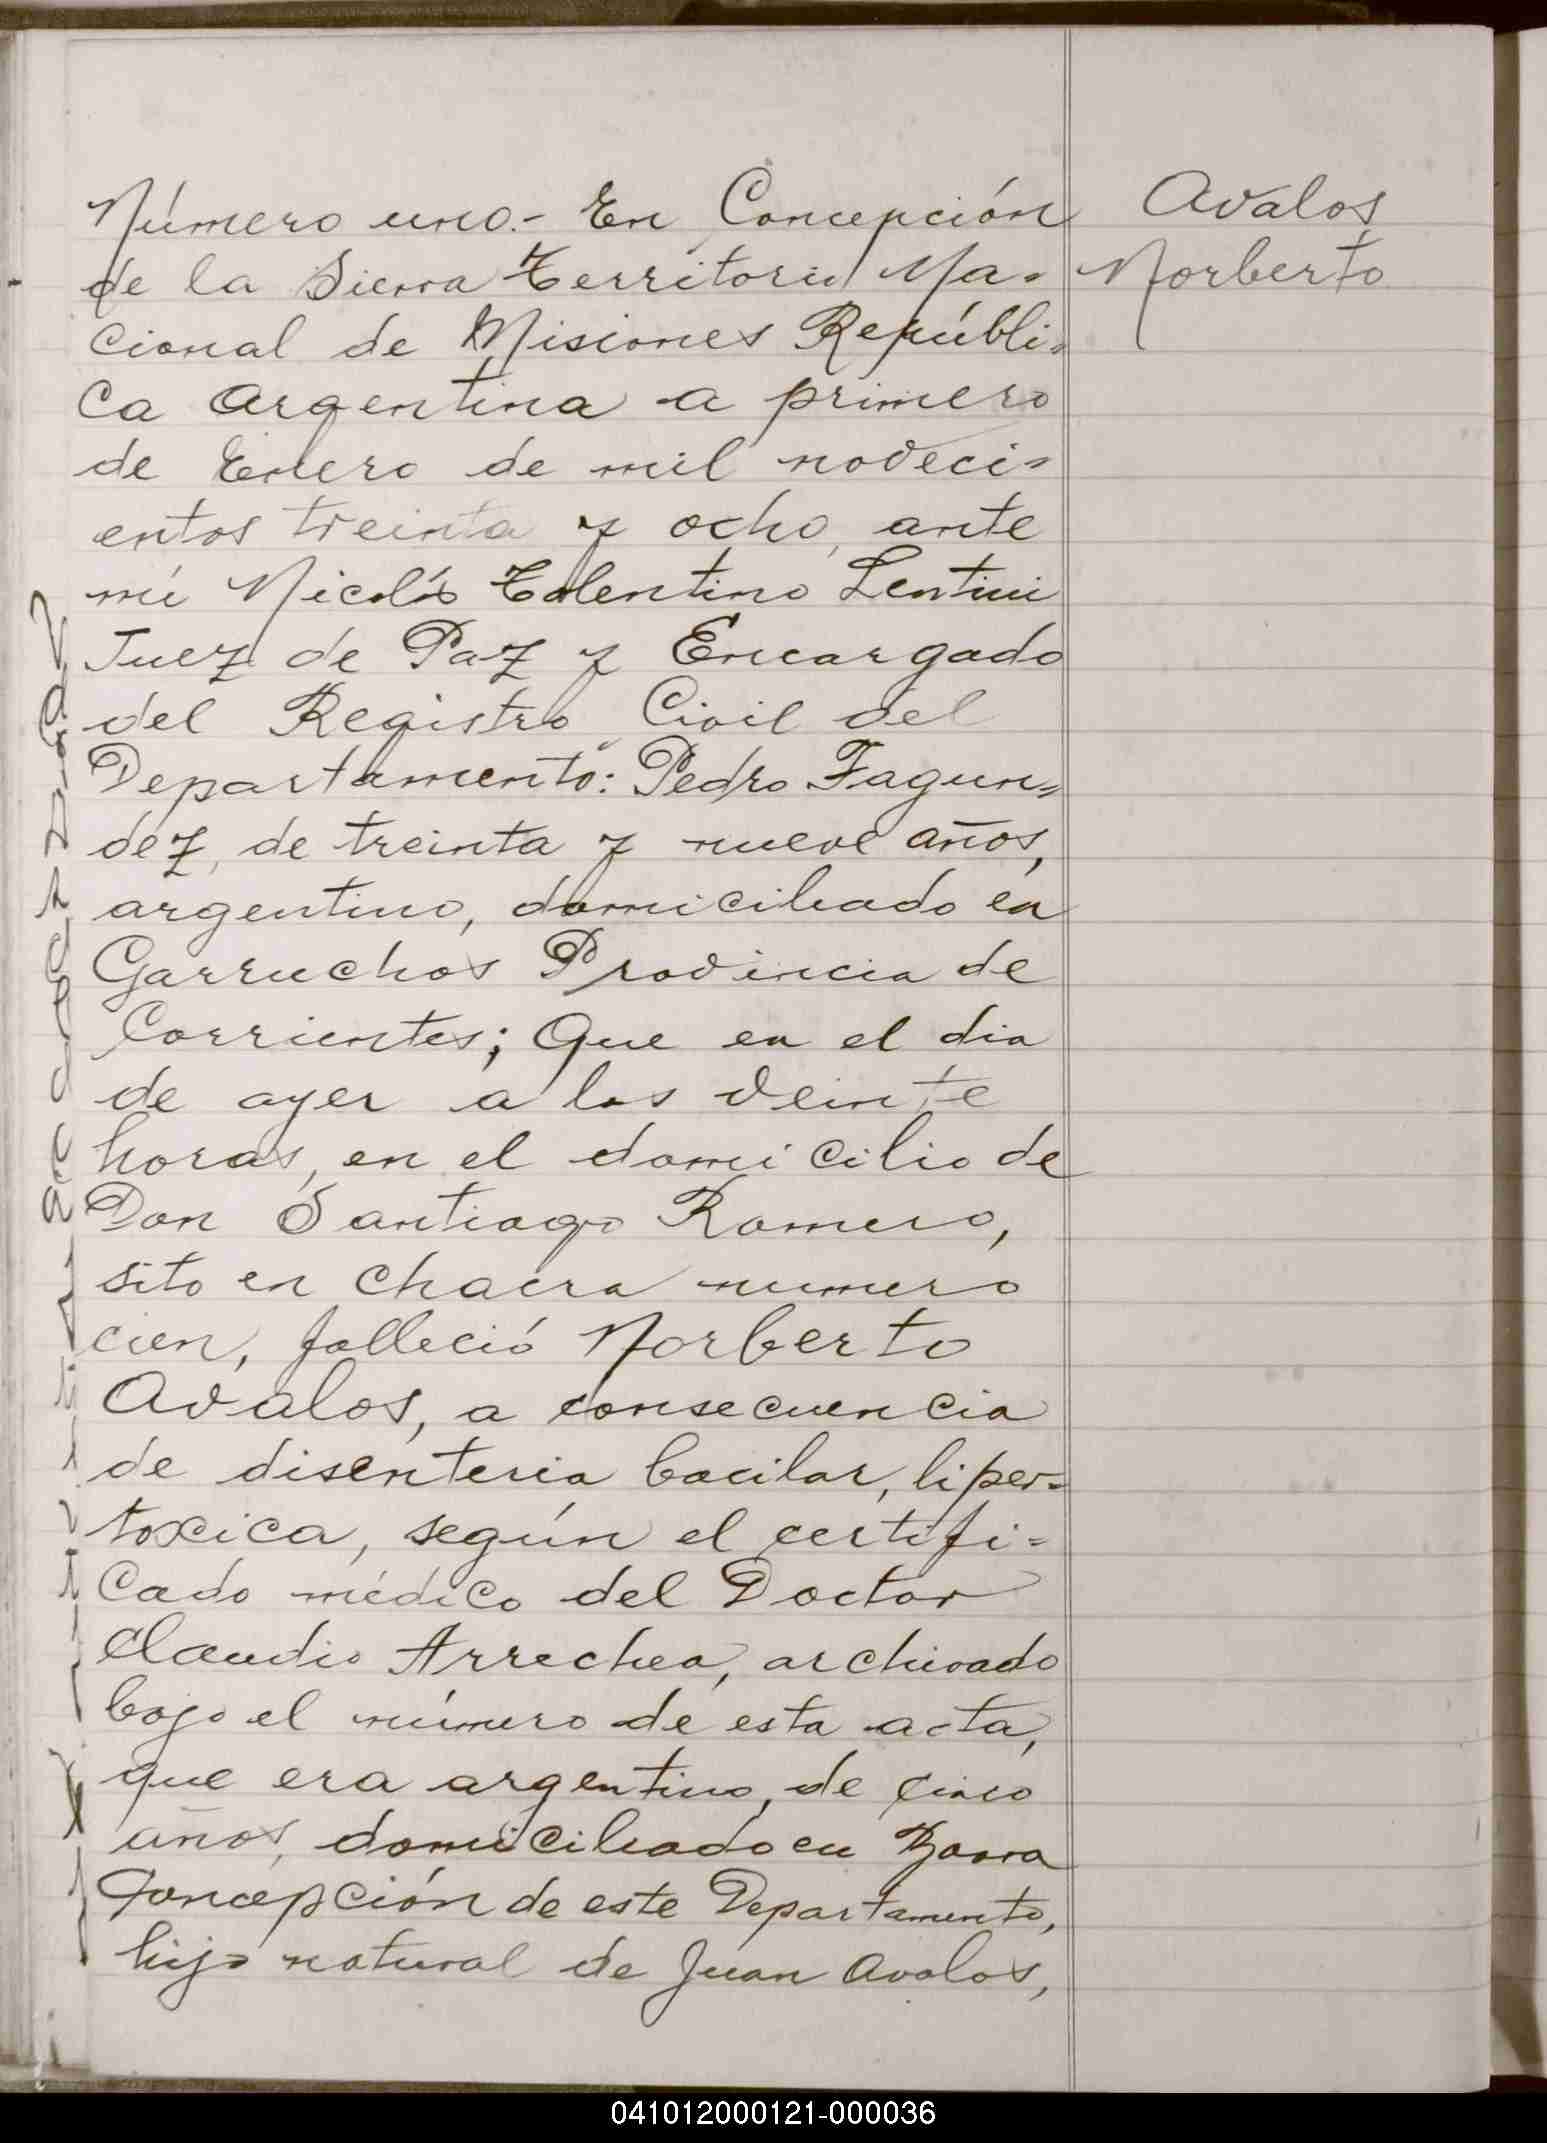 Número uno.- En Concepción
de la Sierra Territorio Na=
cional de Misiones Repúbli=
ca Argentina a primero
de Enero de mil noveci=
entos treinta y ocho, ante
mi Nicolás Tolentino Lentini
Juez de Paz y Encargado
del Registro Civil del
Departamento: Pedro Fagun=
dez, de treinta y nueve años,
argentino, domiciliado en
Garruchos Provincia de
Corrientes; Que en el dia
de ayer a las veinte
horas, en el domicilio de
Don Santiago Romero,
sito en chacra numero
cien, falleció Norberto
Avalos, a consecuencia
de disenteria bacilar, hiper=
toxica, según el certifi=
cado médico del Doctor
Claudio Arrechea, archivado
bajo el número de esta acta,
que era argentino, de cinco
años, domiciliado en Barra
Concepción de este Departamento,
hijo natural de Juan Avalos,
Avalos
Norberto
041012000121-000036